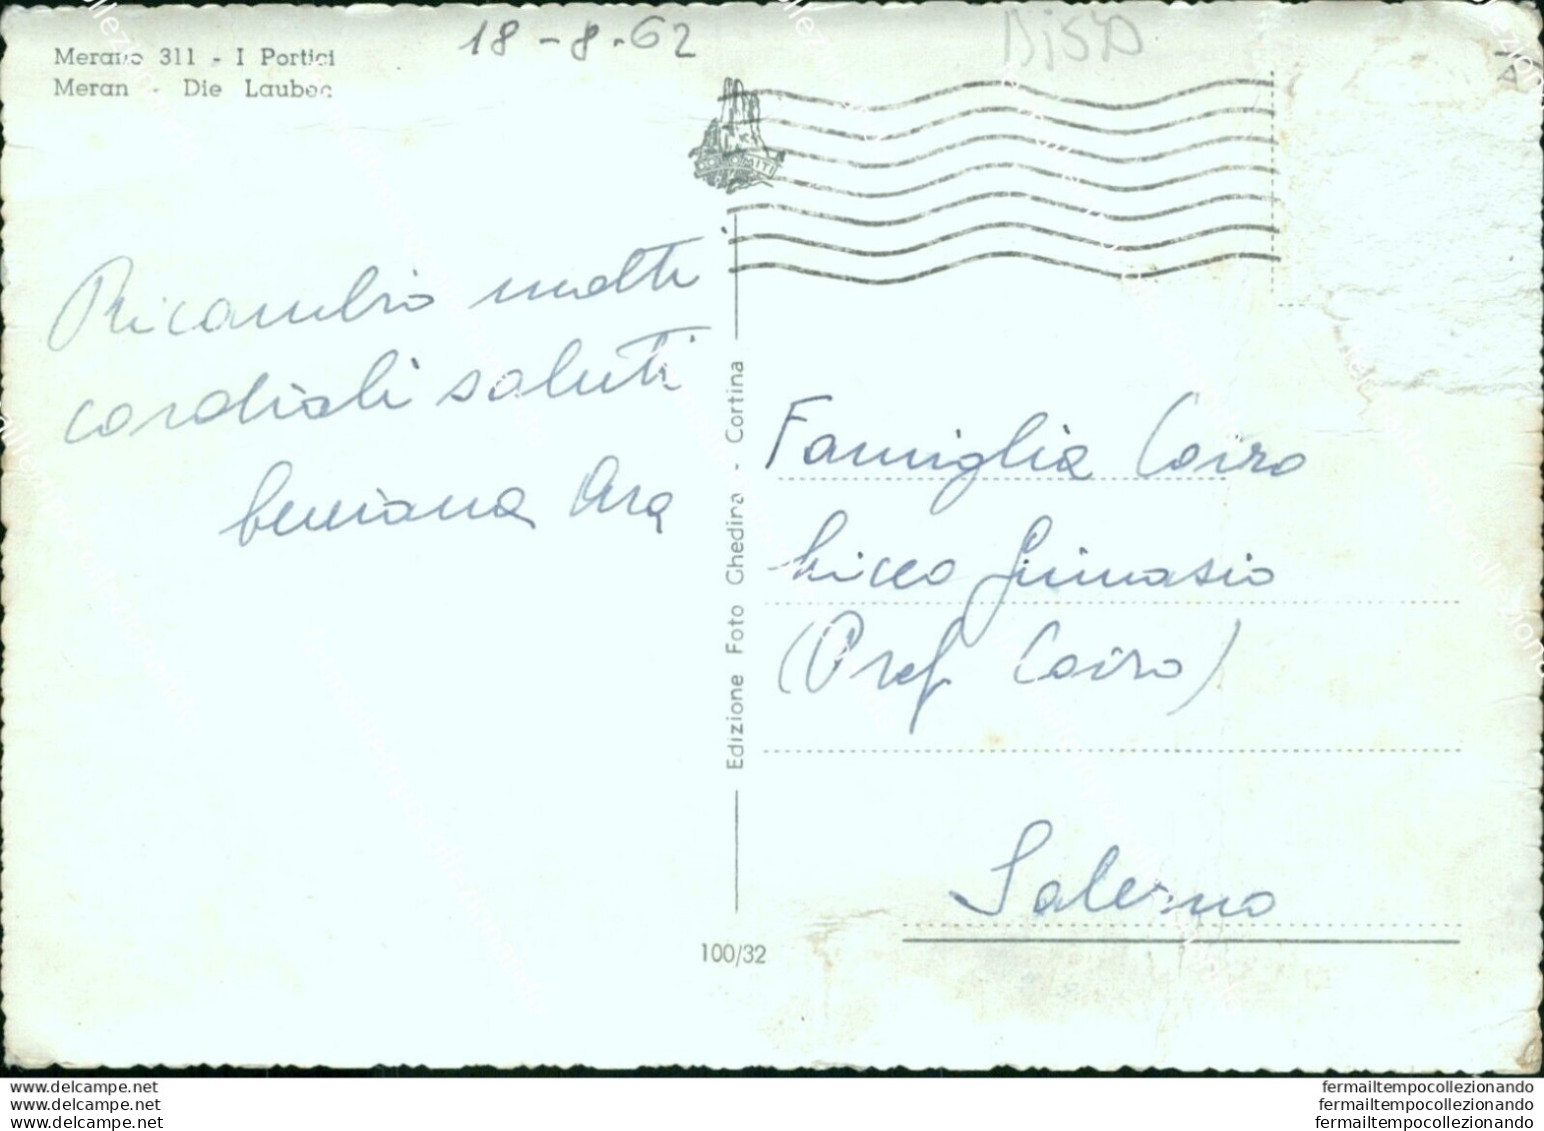 Merano 311 - I Portici
Meran - Die Lauben
18-8-62
Ricambio molti
cordiali saluti
Famiglia Cairo
Liceo Ginnasio
(Prof Cairo)
Salerno
Edizione Foto Ghedina - Cortina
100/32
www.delcampe.net
www.delcampe.net
www.delcampe.net
fermailtempocollezionando
fermailtempocollezionando
fermailtempocollezionando